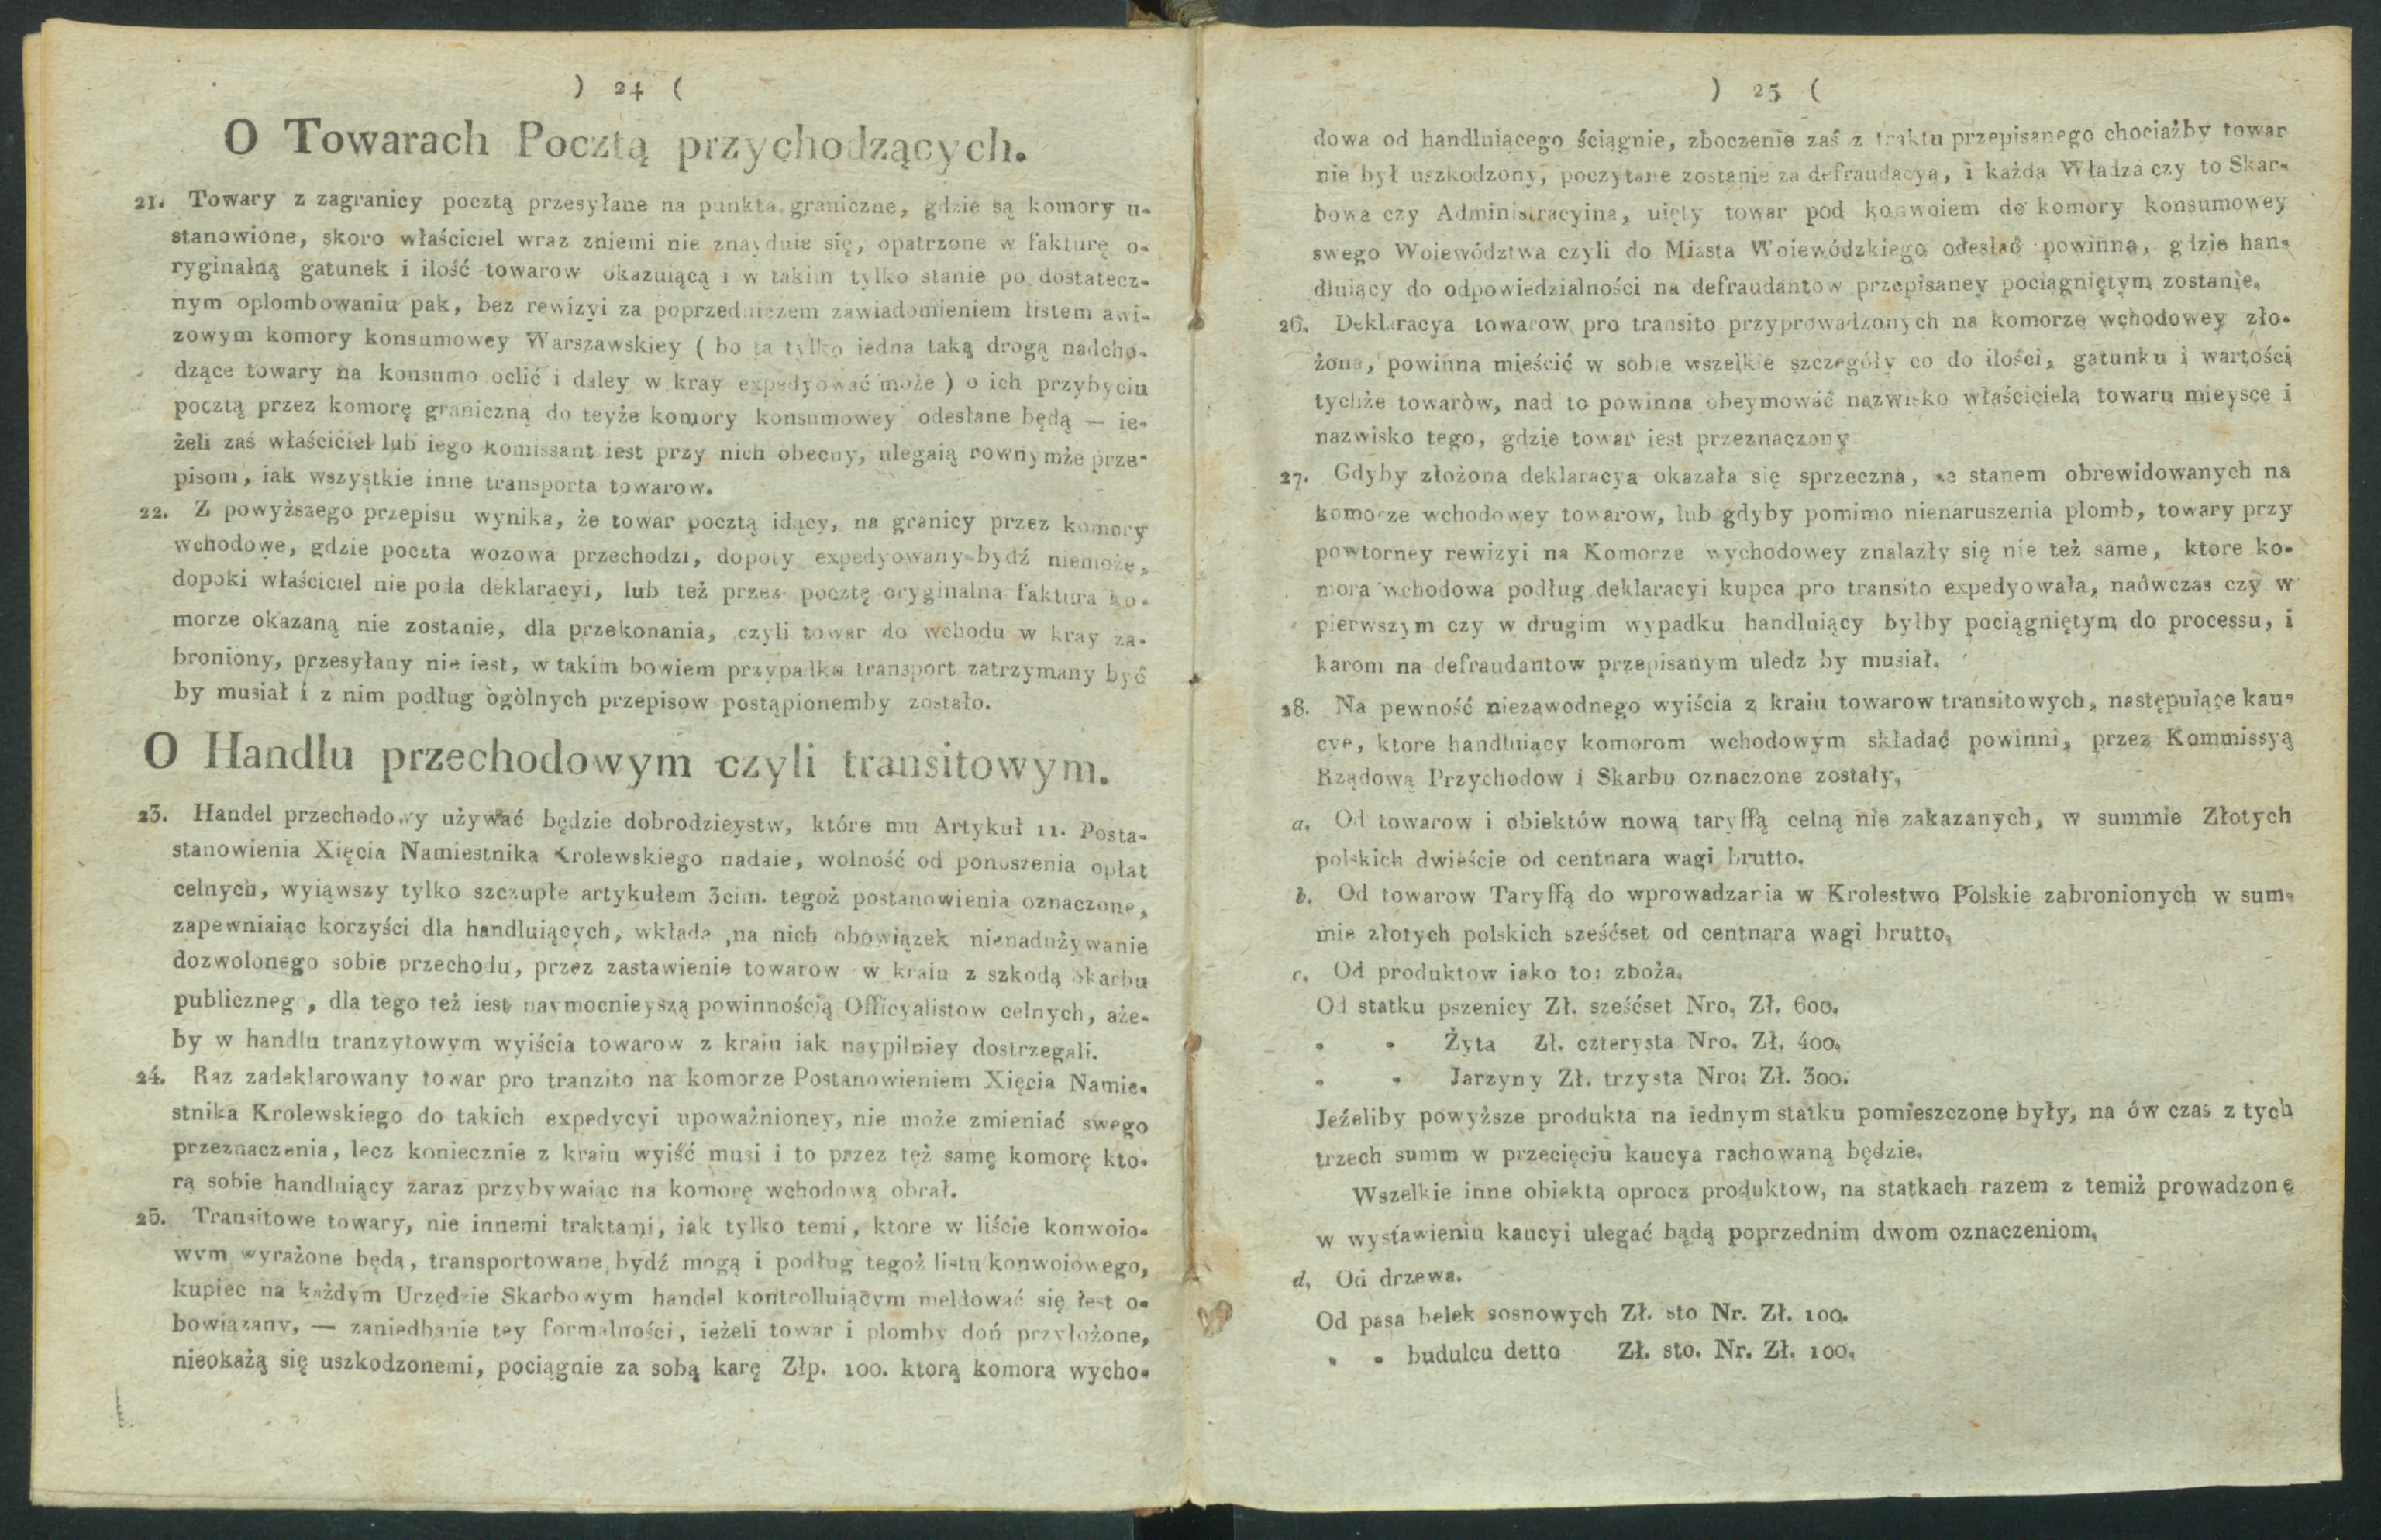 ) 24 (
O Towarach Pocztą przychodzących.
21. Towary z zagranicy pocztą przesyłane na punkta graniczne, gdzie są komory u-
stanowione, skoro właściciel wraz zniemi nie znayduie się, opatrzone w fakturę o-
ryginalną gatunek i ilość towarow okazuiącą i w takim tylko stanie po dostatecz-
nym oplombowaniu pak, bez rewizyi za poprzedniczem zawiadomieniem listem awi-
zowym komory konsumowey Warszawskiey ( bo ta tylko iedna taką drogą nadcho-
dzące towary na konsumo oclić i daley w kray expedyować może ) o ich przybyciu
pocztą przez komorę graniczną do teyże komory konsumowey odesłane będą — ie-
żeli zaś właściciel lub iego komissant iest przy nich obecny, ulegaią rownymże prze-
pisom, iak wszystkie inne transporta towarow.
22. Z powyższego przepisu wynika, że towar pocztą idący, na granicy przez komory
wchodowe, gdzie poczta wozowa przechodzi, dopoty expedyowany bydź niemoże,
dopoki właściciel nie poda deklaracyi, lub też przez pocztę oryginalna faktura ko-
morze okazaną nie zostanie, dla przekonania, czyli towar do wchodu w kray za-
broniony, przesyłany nie iest, w takim bowiem przypadku transport zatrzymany być
by musiał i z nim podług ogólnych przepisow postąpionemby zostało.
O Handlu przechodowym czyli transitowym.
23. Handel przechodowy używać będzie dobrodzieystw, które mu Artykuł 11. Posta-
stanowienia Xięcia Namiestnika Krolewskiego nadaie, wolność od ponoszenia opłat
celnych, wyiąwszy tylko szczupłe artykułem 3cim. tegoż postanowienia oznaczone,
zapewniaiąc korzyści dla handluiących, wkłada ,na nich obowiązek nienadużywanie
dozwolonego sobie przechodu, przez zastawienie towarow w kraiu z szkodą Skarbu
publiczneg , dla tego też iest naymocnieyszą powinnością Officyalistow celnych, aże-
by w handlu tranzytowym wyiścia towarow z kraiu iak naypilniey dostrzegali.
24. Raz zadeklarowany towar pro tranzito na komorze Postanowieniem Xięcia Namie-
stnika Krolewskiego do takich expedycyi upoważnioney, nie może zmieniać swego
przeznaczenia, lecz koniecznie z kraiu wyiść musi i to przez też samę komorę kto-
rą sobie handluiący zaraz przybywaiąc na komorę wchodową obrał.
25. Transitowe towary, nie innemi traktami, iak tylko temi, ktore w liście konwoio-
wym wyrażone będą, transportowane bydź mogą i podług tegoż listu konwoiowego,
kupiec na każdym Urzędzie Skarbowym handel kontrolluiącym meldować się iest o-
bowiązany, — zaniedbanie tey formalności, ieżeli towar i plomby doń przyłożone,
nieokażą się uszkodzonemi, pociągnie za sobą karę Złp. 100. ktorą komora wycho-
) 25 (
dowa od handluiącego ściągnie, zboczenie zaś z traktu przepisanego chociażby towar
nie był uszkodzony, poczytane zostanie za defraudacyą, i każda Władza czy to Skar-
bowa czy Administracyina, uięty towar pod konwoiem do komory konsumowey
swego Woiewództwa czyli do Miasta Woiewódzkiego odesłać powinna, gdzie han-
dluiący do odpowiedzialności na defraudantow przepisaney pociągniętym zostanie.
26. Deklaracya towarow pro transito przyprowadzonych na komorze wchodowey zło-
żona, powinna mieścić w sobie wszelkie szczegóły co do ilości, gatunku i wartości
tychże towaròw, nad to powinna obeymować nazwisko właściciela towaru mieysce i
nazwisko tego, gdzie towar iest przeznaczony
27. Gdyby złożona deklaracya okazała się sprzeczna, ze stanem obrewidowanych na
komorze wchodowey towarow, lub gdyby pomimo nienaruszenia plomb, towary przy
powtorney rewizyi na Komorze wychodowey znalazły się nie też same, ktore ko-
mora wchodowa podług deklaracyi kupca pro transito expedyowała, naówczas czy w
pierwszym czy w drugim wypadku handluiący byłby pociągniętym do processu, i
karom na defraudantow przepisanym uledz by musiał.
28. Na pewność niezawodnego wyiścia z kraiu towarow transitowych, następuiące kau-
cye, ktore handluiący komorom wchodowym składać powinni, przez Kommissyą
Rządową Przychodow i Skarbu oznaczone zostały,
a. Od towarow i obiektów nową taryffą celną nie zakazanych, w summie Złotych
polskich dwieście od centnara wagi brutto.
b. Od towarow Taryffą do wprowadzania w Krolestwo Polskie zabronionych w sum-
mie złotych polskich sześćset od centnara wagi brutto,
c. Od produktow iako to: zboża.
Od statku pszenicy Zł. sześćset Nro. Zł. 600.
- - Żyta Zł. czterysta Nro. Zł. 400.
- - Jarzyny Zł. trzysta Nro: Zł. 300.
Jeżeliby powyższe produkta na iednym statku pomieszczone były, na ów czas z tych
trzech summ w przecięciu kaucya rachowaną będzie.
Wszelkie inne obiekta oprocz produktow, na statkach razem z temiż prowadzone
w wystawieniu kaucyi ulegać bądą poprzednim dwom oznaczeniom.
d. Od drzewa.
Od pasa belek sosnowych Zł. sto Nr. Zł. 100.
- - budulcu detto Zł. sto. Nr. Zł. 100.